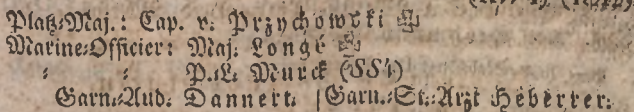 Platz-Maj.: Cap. v. Przychowski
Marine-Officier: Maj. Longé
: : P.L. Murck (SS4)
Garn.-Aud. Dannert. Garn.-St.-Arzt Heberrer.